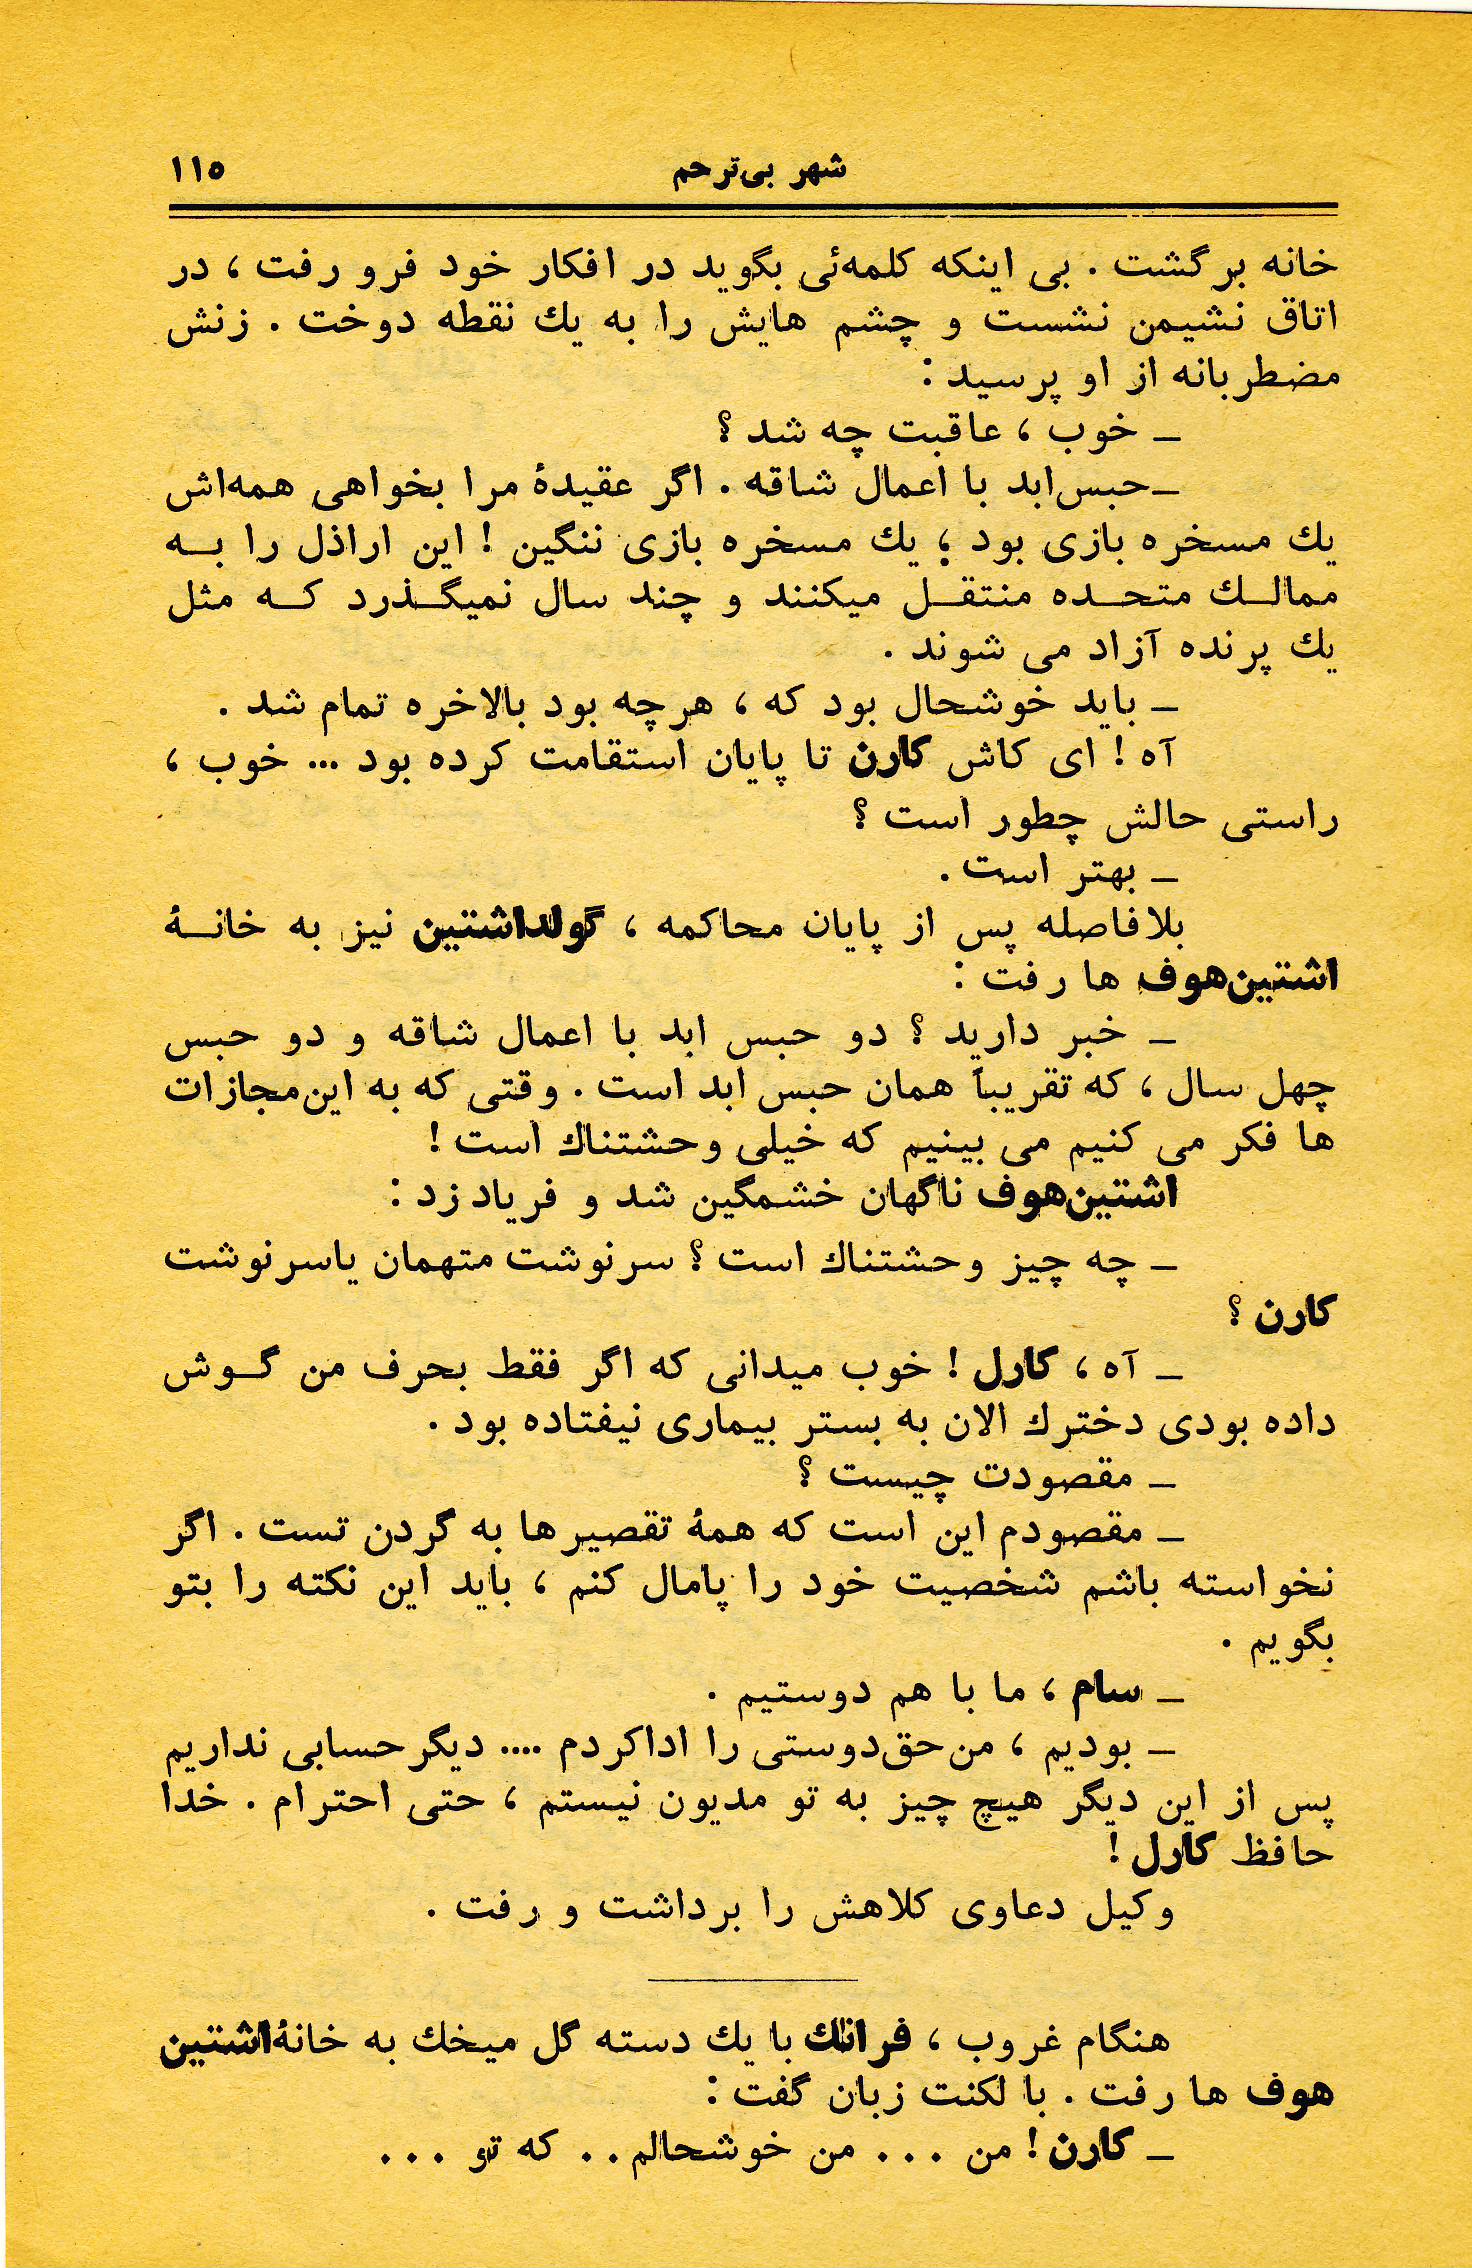 شهر بی‌ترحم ۱۱۵
خانه برگشت . بی اینکه کلمه‌ئی بگوید در افکار خود فرو رفت ، در
اتاق نشیمن نشست و چشم هایش را به یك نقطه دوخت . زنش
مضطربانه از او پرسید :
ـ خوب ، عاقبت چه شد ؟
ـ حبس‌ابد با اعمال شاقه . اگر عقیدهٔ مرا بخواهی همه‌اش
یك مسخره بازی بود ؛ یك مسخره بازی ننگین ! این اراذل را بـه
ممالـك متحـده منتقـل میکنند و چند سال نمیگـذرد کـه مثل
یك پرنده آزاد می شوند .
ـ باید خوشحال بود که ، هرچه بود بالاخره تمام شد .
آه ! ای کاش کارن تا پایان استقامت کرده بود ... خوب ،
راستی حالش چطور است ؟
ـ بهتر است .
بلافاصله پس از پایان محاکمه ، گولداشتین نیز به خانـهٔ
اشتین‌هوف ها رفت :
ـ خبر دارید ؟ دو حبس ابد با اعمال شاقه و دو حبس
چهل سال ، که تقریباً همان حبس ابد است . وقتی که به این‌مجازات
ها فکر می کنیم می بینیم که خیلی وحشتناك است !
اشتین‌هوف ناگهان خشمگین شد و فریاد زد :
ـ چه چیز وحشتناك است ؟ سرنوشت متهمان یاسرنوشت
کارن ؟
ـ آه ، کارل ! خوب میدانی که اگر فقط بحرف من گـوش
داده بودی دخترك الان به بستر بیماری نیفتاده بود .
ـ مقصودت چیست ؟
ـ مقصودم این است که همهٔ تقصیرها به گردن تست . اگر
نخواسته باشم شخصیت خود را پامال کنم ، باید این نکته را بتو
بگویم .
ـ سام ، ما با هم دوستیم .
ـ بودیم ، من‌حق‌دوستی را اداکردم .... دیگرحسابی نداریم
پس از این دیگر هیچ چیز به تو مدیون نیستم ، حتی احترام . خدا
حافظ کارل !
وکیل دعاوی کلاهش را برداشت و رفت .
هنگام غروب ، فرانك با یك دسته گل میخك به خانهٔ اشتین
هوف ها رفت . با لکنت زبان گفت :
ـ کارن ! من ... من خوشحالم .. که تو ...